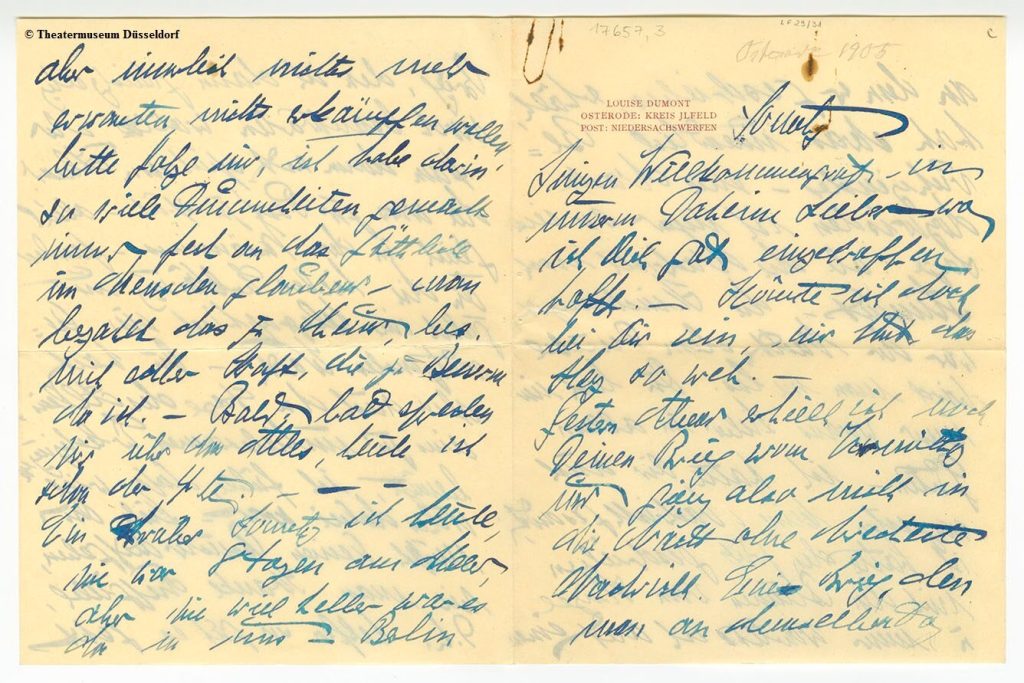 © Theatermuseum Düsseldorf
aber innerlich nichts mehr
erwarten nichts erkämpfen wollen
bitte folge mir, ich habe darin
so viele Dummheiten gemacht
immer fest an das Göttliche
im Menschen glauben – man
bezahlt das
mit aller Kraft, die zu
da ist. – Bald, bald sprechen
wir über das Alles, heute ist
schon der 4te. – – –
Ein Sonntag ist heute,
wie vor 8 Tagen am Meer,
aber wie viel heller war es
da in uns – Berlin
17657,3
LF 29/31
c
Osterode 1905
LOUISE DUMONT
OSTERODE: KREIS JLFELD
POST: NIEDERSACHSWERFEN
Sonntag
Innigen Willkommengruß – in
unserm Daheim Lieber – wo
ich Dich gut eingetroffen
hoffe. – Könnte ich doch
bei Dir sein, mir thut das
Herz so weh. –
Gestern Abend erhielt ich noch
Deinen Brief vom Vormittag
ging also nicht in
die Nacht ohne directeste
Nachricht. Einen Brief, den
man an demselben Tag